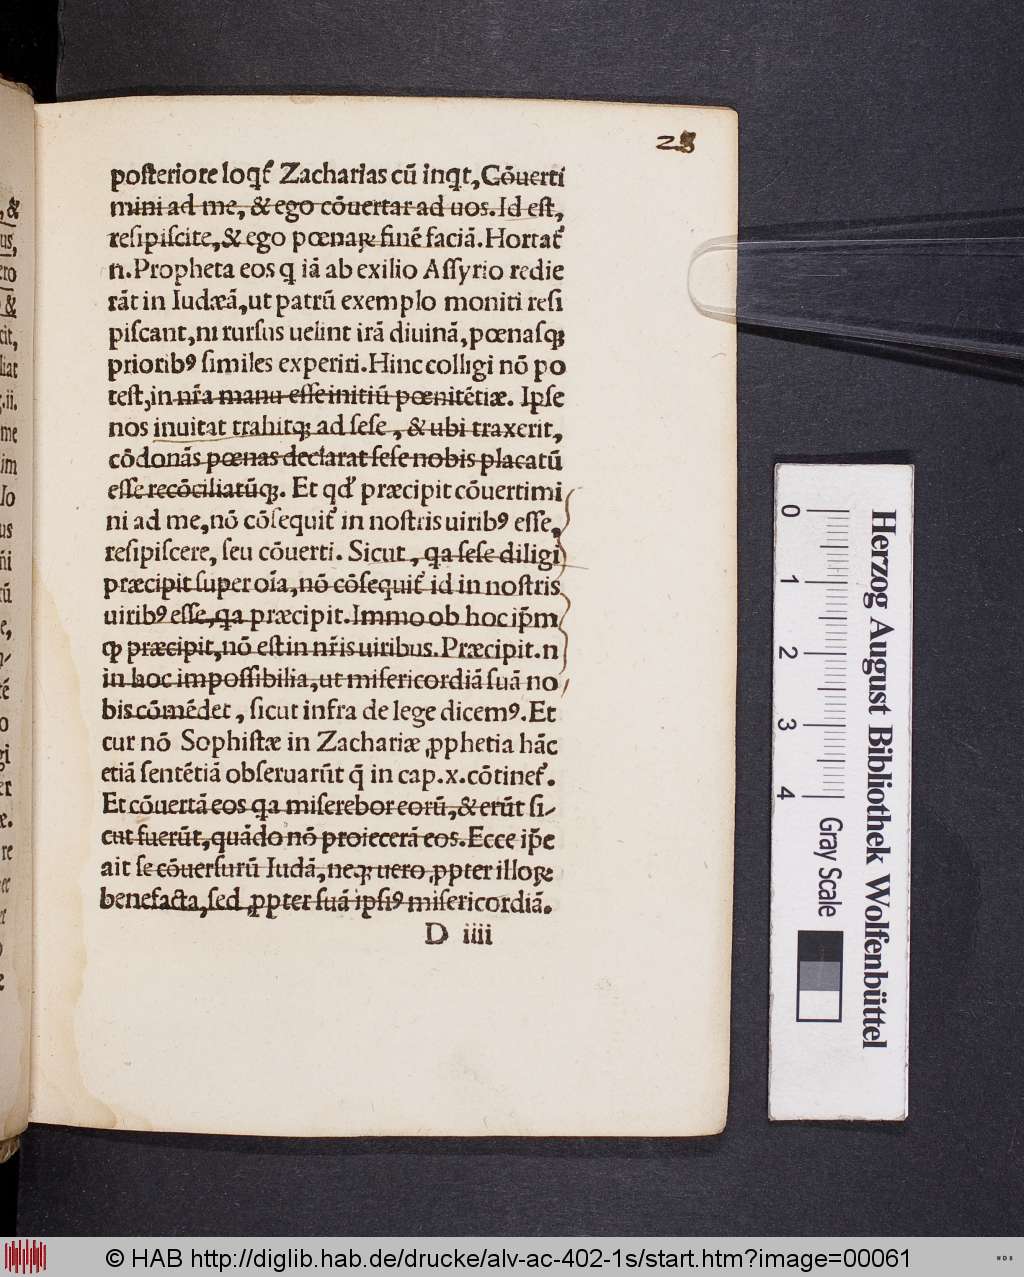 28
posteriore loqt᷑ Zacharias cū inqt, Cōuerti
mini ad me, & ego cōuertar ad uos. Id est,
resipiscite, & ego pœnaꝝ finē faciā. Hortat᷑
n. Propheta eos q iā ab exilio Assyrio redie
rāt in Iudæā, ut patrū exemplo moniti resi
piscant, ni rursus uelint irā diuinā, pœnasqꝫ
priorib⁹ similes experiri. Hinc colligi nō po
test, in nr̄a manu esse initiū pœnitētiæ. Ipse
nos inuitat trahitqꝫ ad sese, & ubi traxerit,
cōdonās pœnas declarat sese nobis placatū
esse recōciliatūqꝫ. Et qd̕ præcipit cōuertimi
ni ad me, nō cōsequit᷑ in nostris uirib⁹ esse,
resipiscere, seu cōuerti. Sicut, qa sese diligi
præcipit super oīa, nō cōsequit᷑ id in nostris
uirib⁹ esse, qa præcipit. Immo ob hoc ip̄m
ꝙ præcipit, nō est in nr̄is uiribus. Præcipit. n
in hoc impossibilia, ut misericordiā suā no
bis cōmēdet, sicut infra de lege dicem⁹. Et
cur nō Sophistæ in Zachariæ ꝓphetia hāc
etiā sentētiā obseruarūt q̄ in cap. x. cōtinet᷑.
Et cōuertā eos qa miserebor eorū, & erūt si-
cut fuerūt, quādo nō proiecerā eos. Ecce ip̄e
ait se cōuersurū Iudā, neqꝫ uero ꝓpter illoꝝ
benefacta, sed ꝓpter suā ipsi⁹ misericordiā.
D iiii
, &
us,
ero
&
cit,
liat
.ii.
me
im
Io
us
ñi
rū
e,
tē
o
gi
er
æ.
re
et
0 1 2 3 4
Gray Scale
Herzog August Bibliothek Wolfenbüttel
© HAB http://diglib.hab.de/drucke/alv-ac-402-1s/start.htm?image=00061